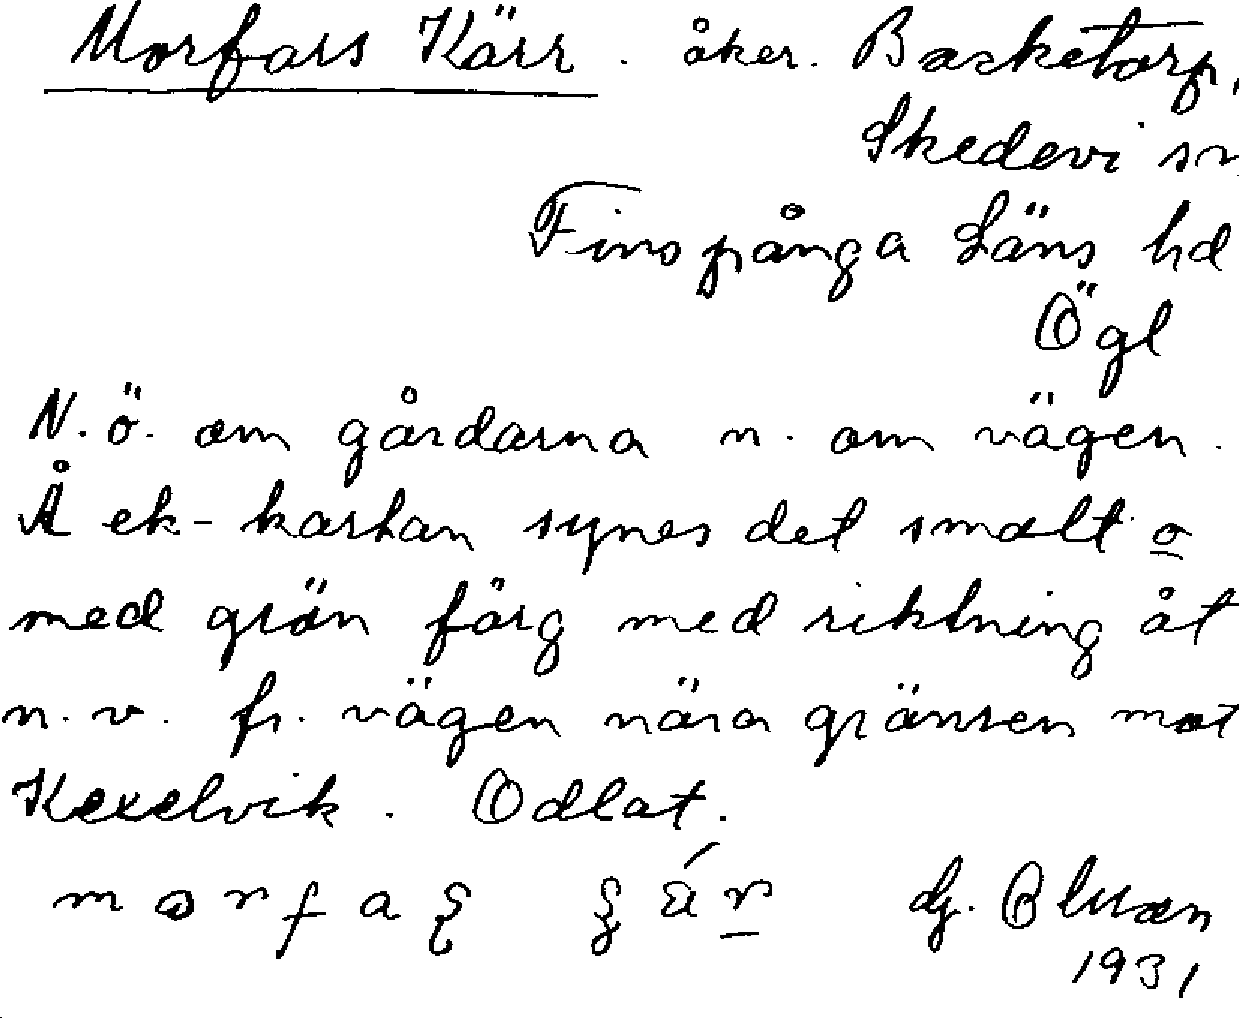 Morfars Kärr. åker. Backetorp,
Skedevi sn
Finspånga Läns hd
Ögl
N.ö. om gårdarna n. om vägen.
Å ek-kartan synes det smalt o
med grön färg med riktning åt
n.v. fr. vägen nära gränsen mot
Kexelvik. Odlat.
morfa
1931